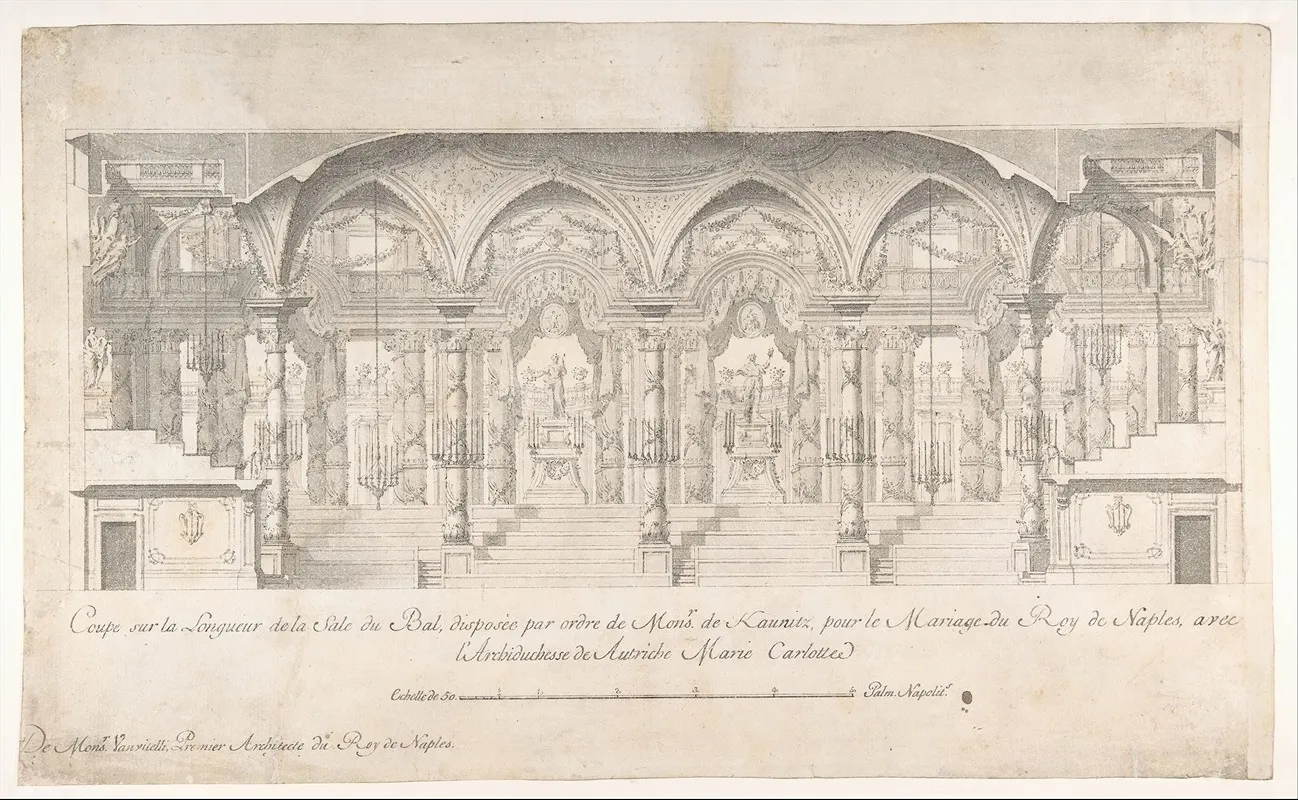 Coupe sur la Longueur de la Sale du Bal, disposée par ordre de Mons.r de Kaunitz, pour le Mariage du Roy de Naples, avec
l'Archiduchesse de Autriche Marie Carlotte
Echelle de 50 Palm. Napolit.s
De Mons.r Vanvitelli, Premier Architecte du Roy de Naples.